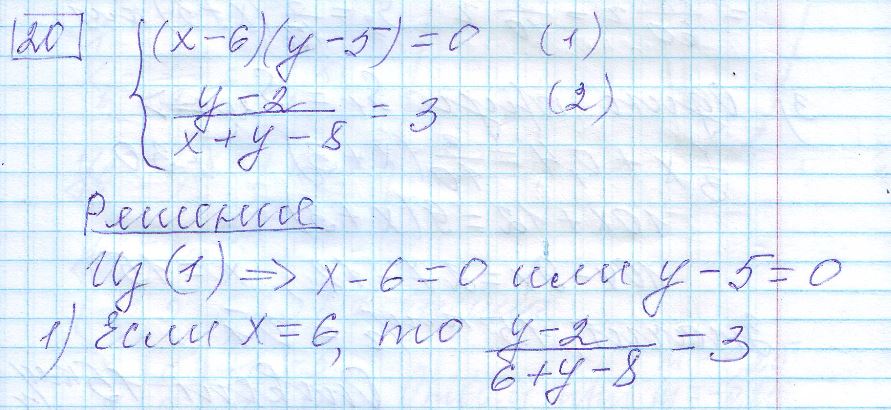 20 (x-6)(y-5)=0 (1)
(y-2)/(x+y-8) = 3 (2)
Решение
Из (1) => x-6=0 или y-5=0
1) Если x=6, то (y-2)/(6+y-8) = 3